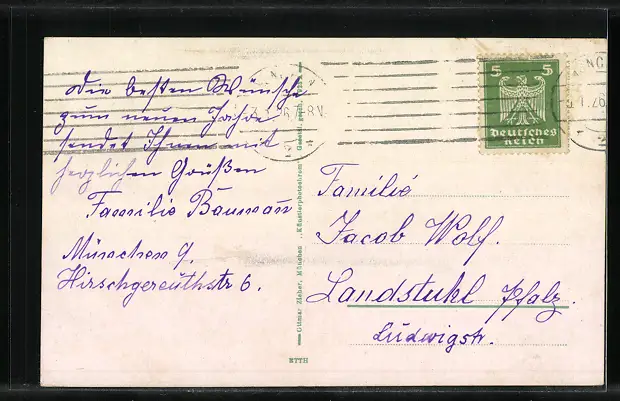 Die besten Wünsche
zum neuen Jahre
sendet Ihnen mit
herzlichen Grüßen
Familie Baumann
München 9.
Hirschgereuthstr 6.
Ottmar Zieher, München „Künstlerphotochrom"
ETTH
5 5
Deutsches
Reich
26
8V
Familie
Jacob Wolf.
Landstuhl Pfalz.
Ludwigstr.